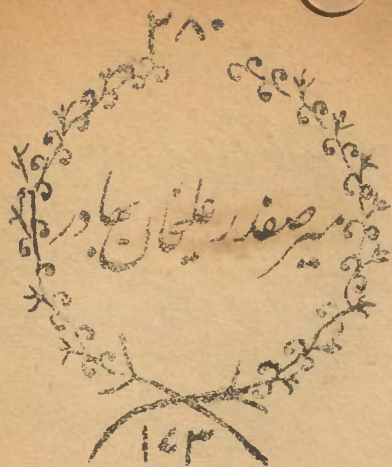 ۲۸۰
میر صفدر علیخان بہادر
۱۴۳